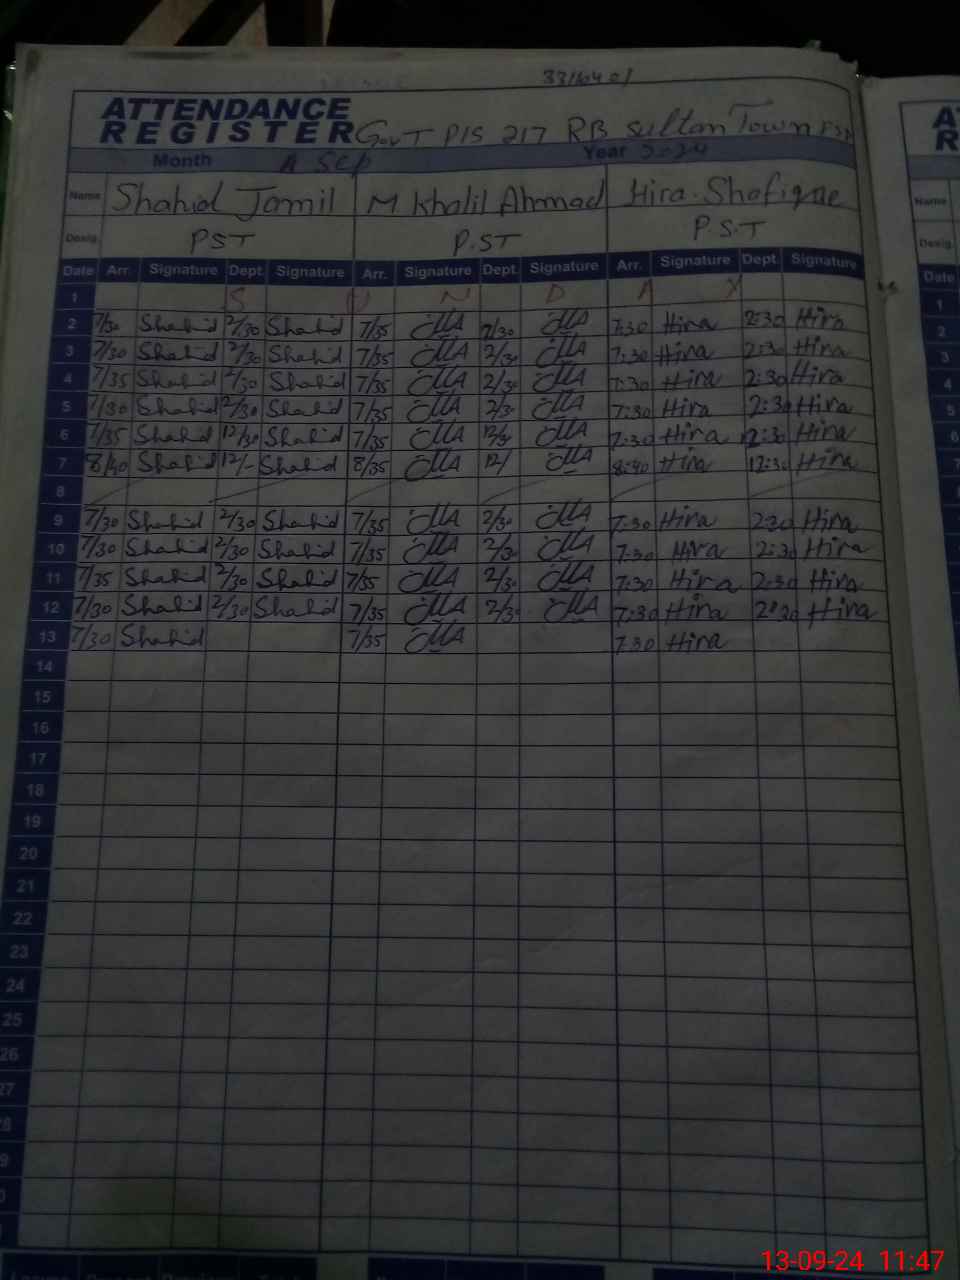 33104401
ATTENDANCE
REGISTER Govt P/S 217 RB Sultan Town FSD
Month Sep Year 2024
Name Shahid Jamil M Khalil Ahmad Hira Shafique
Desig. PST P.ST P.S.T
Date Arr. Signature Dept. Signature Arr. Signature Dept. Signature Arr. Signature Dept. Signature
1 S U N D A Y
2 7/30 Shahid 2/30 Shahid 7/35 2/30 7:30 Hira 2:30 Hira
3 7/30 Shahid 2/30 Shahid 7/35 2/30 7:30 Hira 2:30 Hira
4 7/35 Shahid 2/30 Shahid 7/35 2/30 7:30 Hira 2:30 Hira
5 7/30 Shahid 2/30 Shahid 7/35 2/30 7:30 Hira 2:30 Hira
6 7/35 Shahid 12/30 Shahid 7/35 12/30 7:30 Hira 12:30 Hira
7 8/40 Shahid 12/- Shahid 8/35 12/ 8:40 Hira 12:30 Hira
8
9 7/30 Shahid 2/30 Shahid 7/35 2/30 7:30 Hira 2:30 Hira
10 7/30 Shahid 2/30 Shahid 7/35 2/30 7:30 Hira 2:30 Hira
11 7/35 Shahid 2/30 Shahid 7/35 2/30 7:30 Hira 2:30 Hira
12 7/30 Shahid 2/30 Shahid 7/35 2/30 7:30 Hira 2:30 Hira
13 7/30 Shahid 7/35 7:30 Hira
14
15
16
17
18
19
20
21
22
23
24
25
26
27
13-09-24 11:47